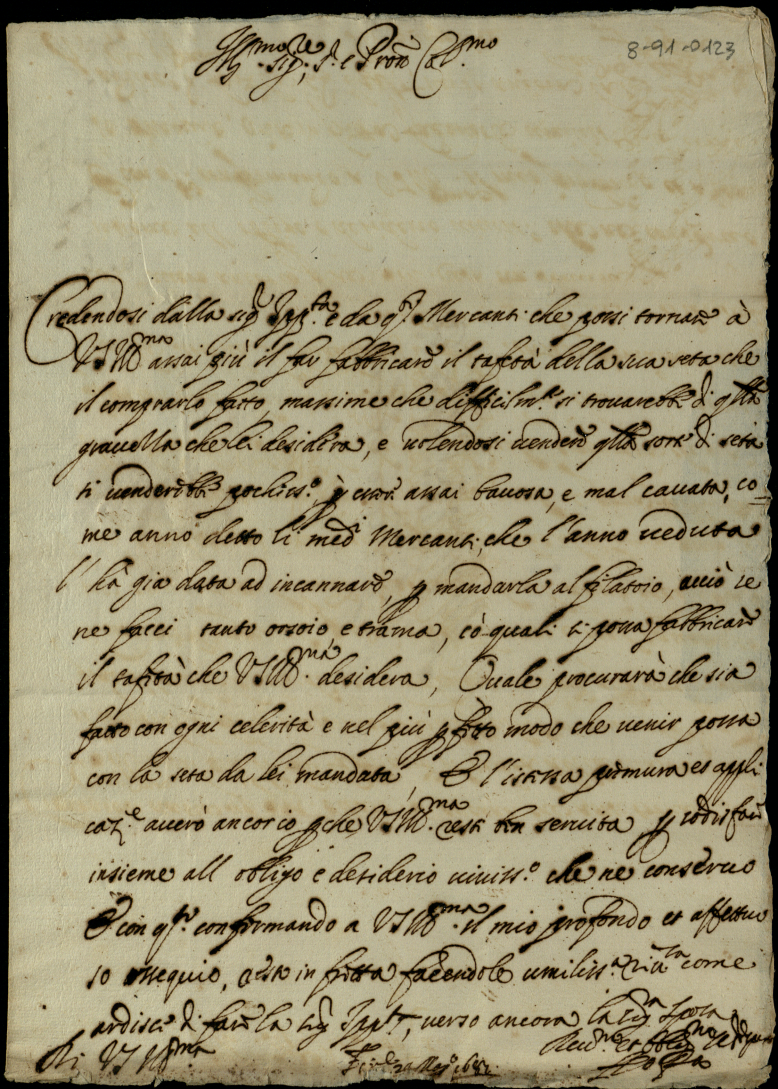 8-91-0123
Ill.mo sig.re, S.r e Pron Col.mo
Credendosi dalla sig.ra Ipp.ta e da q.ti Mercanti che possi tornare à
VSIll.ma assai più il far fabbricare il tafetà della sua seta che
il comprarlo fatto, massime che difficilm.te si trovarebbe di qlla
gravella che lei desidera, e volendosi vendere qlla sorte di seta
si venderebbe pochiss.o, p esser assai bavosa, e mal cavata, co=
me anno detto li med.i Mercanti, che l'anno veduta
l'hà già data ad incannare, p mandarla al filatoio, acciò se
ne facci tanto orsoio, e trama, cò quali si possa fabbricare
il tafetà che VSIll.ma desidera, Quale procurarà che sia
fatto con ogni celerità e nel più pfetto modo che venir possa
con la seta da lei mandata, E l'istessa premura et appli
caz.e averò ancor io pche VSIll.ma resti ben servita p sodisfare
insieme all obligo e desiderio viviss.o che ne conservo
E con q.to confirmando a VSIll.ma il mio profondo et affettuo
so ossequio, resto in fretta facendole umiliss.a riv.za come
ardisce di fare la sig.ra Ipp.ta, verso ancora la sig.ra Sposa
Di VSIll.ma